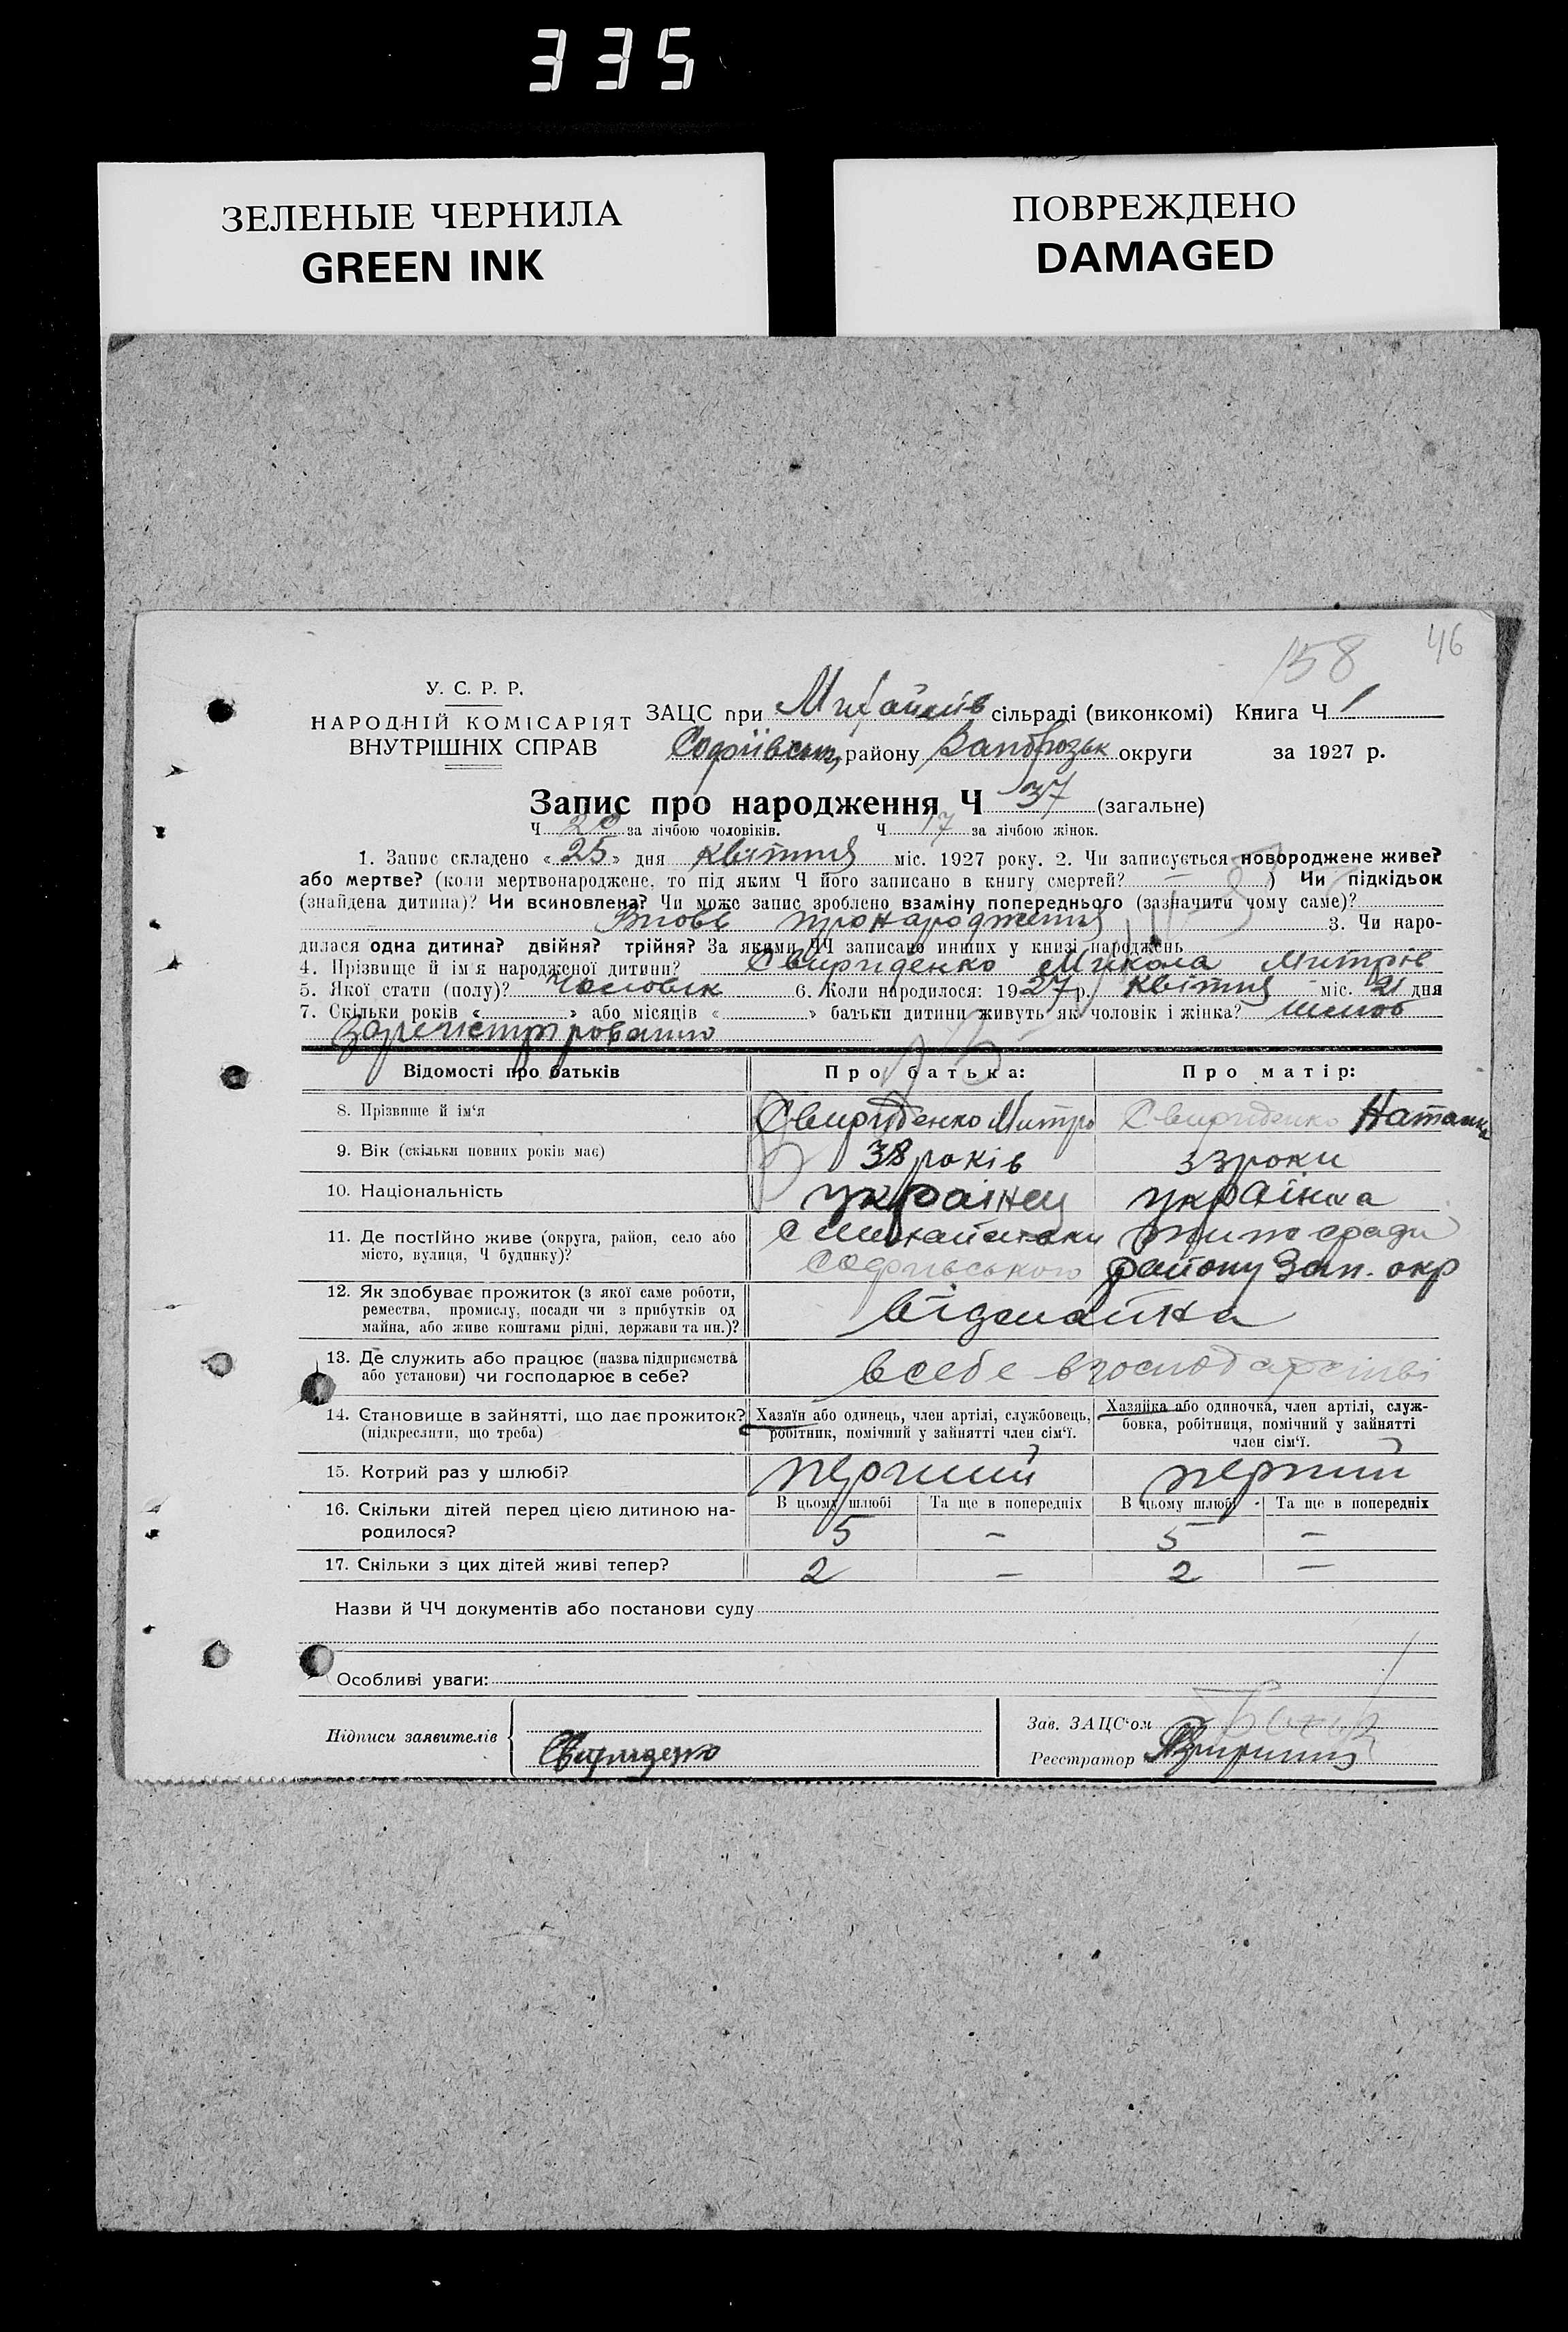 335
ЗЕЛЕНЫЕ ЧЕРНИЛА
GREEN INK
ПОВРЕЖДЕНО
DAMAGED
46
158
У. С. Р. Р.
НАРОДНІЙ КОМІСАРІЯТ
ВНУТРІШНІХ СПРАВ
ЗАЦС при Михайлів сільраді (виконкомі) Книга Ч 1
Софіївськ району Запорозьк округи за 1927 р.
Запис про народження Ч 37 (загальне)
Ч 20 за лічбою чоловіків. Ч 17 за лічбою жінок.
1. Запис складено «25» дня квітня міс. 1927 року. 2. Чи записується новороджене живе?
або мертве? (коли мертвонароджене, то під яким Ч його записано в книгу смертей? — ) Чи підкідьок
(знайдена дитина)? Чи всиновлена? Чи може запис зроблено взаміну попереднього (зазначити чому саме)?
Вновь про народження 3. Чи наро-
дилася одна дитина? двійня? трійня? За якими ЧЧ записано инших у книзі народжень
4. Прізвище й ім'я народженої дитини? Свириденко Микола Митрів
5. Якої стати (полу)? Чоловік 6. Коли народилося: 1927 р. квітня міс. 21 дня
7. Скільки років « » або місяців « » батьки дитини живуть як чоловік і жінка? шлюб
Зарегистрировано
Відомості про батьків Про батька: Про матір:
8. Прізвище й ім'я Свириденко Митро Свириденко Наталка
9. Вік (скільки повних років має) 38 років 33 роки
10. Національність українец українка
11. Де постійно живе (округа, район, село або
місто, вулиця, Ч будинку)?
Софіївського району Зап. окр
12. Як здобуває прожиток (з якої саме роботи,
ремества, промислу, посади чи з прибутків од
майна, або живе коштами рідні, держави та ин.)?
від майна
13. Де служить або працює (назва підприємства
або установи) чи господарює в себе?
в себе в господарстві
14. Становище в зайнятті, що дає прожиток?
(підкреслити, що треба)
Хазяїн або одинець, член артілі, службовець,
робітник, помічний у зайнятті член сім'ї.
Хазяйка або одиночка, член артілі, служ-
бовка, робітниця, помічний у зайнятті
член сім'ї.
15. Котрий раз у шлюбі? перший перший
16. Скільки дітей перед цією дитиною на-
родилося?
В цьому шлюбі Та ще в попередніх В цьому шлюбі Та ще в попередніх
5 — 5 —
17. Скільки з цих дітей живі тепер? 2 — 2 —
Назви й ЧЧ документів або постанови суду
Особливі уваги:
Підписи заявителів Свириденко
Зав. ЗАЦС'ом
Реєстратор